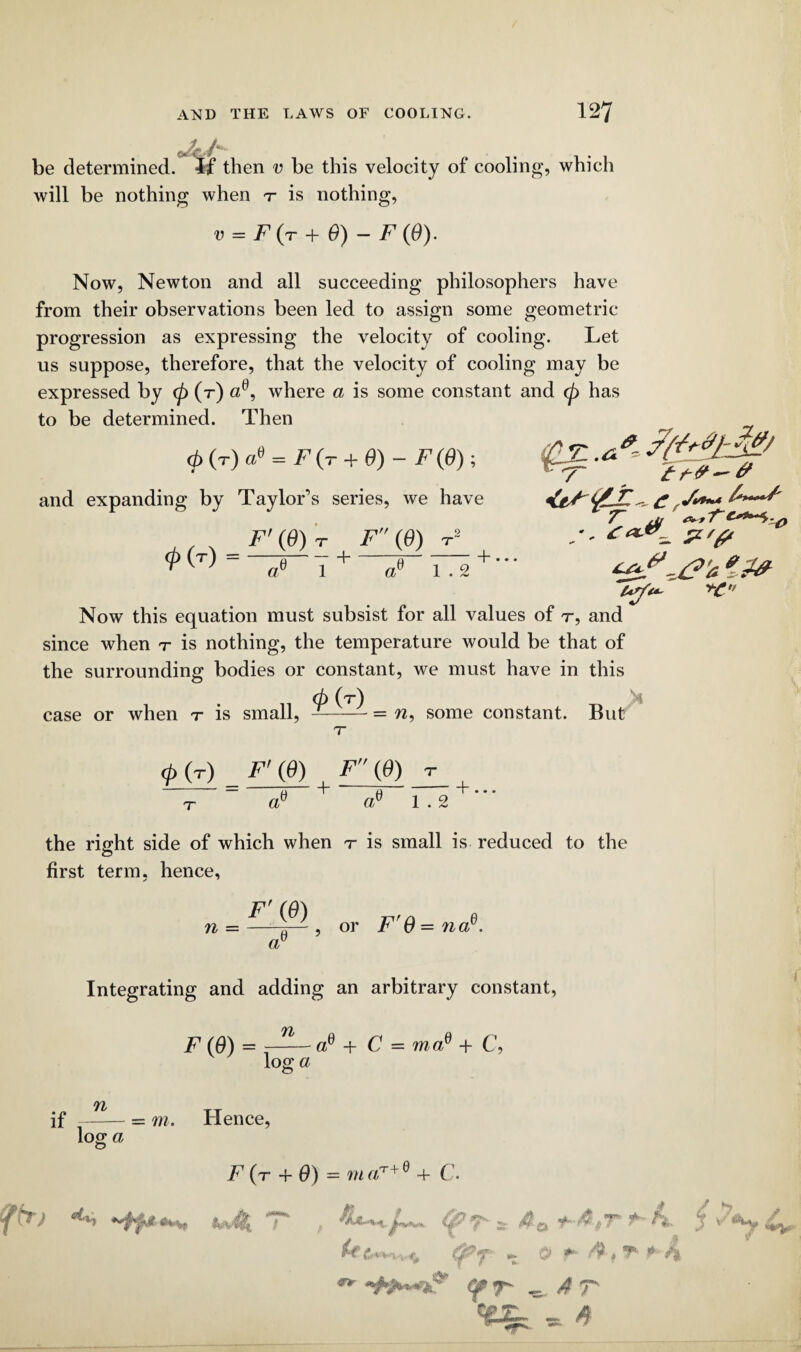 AND THE LAWS OF COOLING. 127
Let
be determined. If then v be this velocity of cooling, which
will be nothing when τ is nothing,
v = F (τ + θ) − F (θ).
Now, Newton and all succeeding philosophers have
from their observations been led to assign some geometric
progression as expressing the velocity of cooling. Let
us suppose, therefore, that the velocity of cooling may be
expressed by φ (τ) a^θ, where a is some constant and φ has
to be determined. Then
φ (τ) a^θ = F (τ + θ) − F (θ) ;
and expanding by Taylor's series, we have
φ (τ) = F' (θ)/a^θ τ/1 + F'' (θ)/a^θ τ²/1 . 2 + ...
Now this equation must subsist for all values of τ, and
since when τ is nothing, the temperature would be that of
the surrounding bodies or constant, we must have in this
case or when τ is small, φ (τ)/τ = n, some constant. But
φ (τ)/τ = F' (θ)/a^θ + F'' (θ)/a^θ τ/1 . 2 + ...
the right side of which when τ is small is reduced to the
first term, hence,
n = F' (θ)/a^θ , or F'θ = na^θ.
Integrating and adding an arbitrary constant,
F (θ) = n/log a a^θ + C = ma^θ + C,
if n/log a = m. Hence,
F (τ + θ) = ma^(τ+θ) + C.
φτ = Aτ
φτ/τ = A